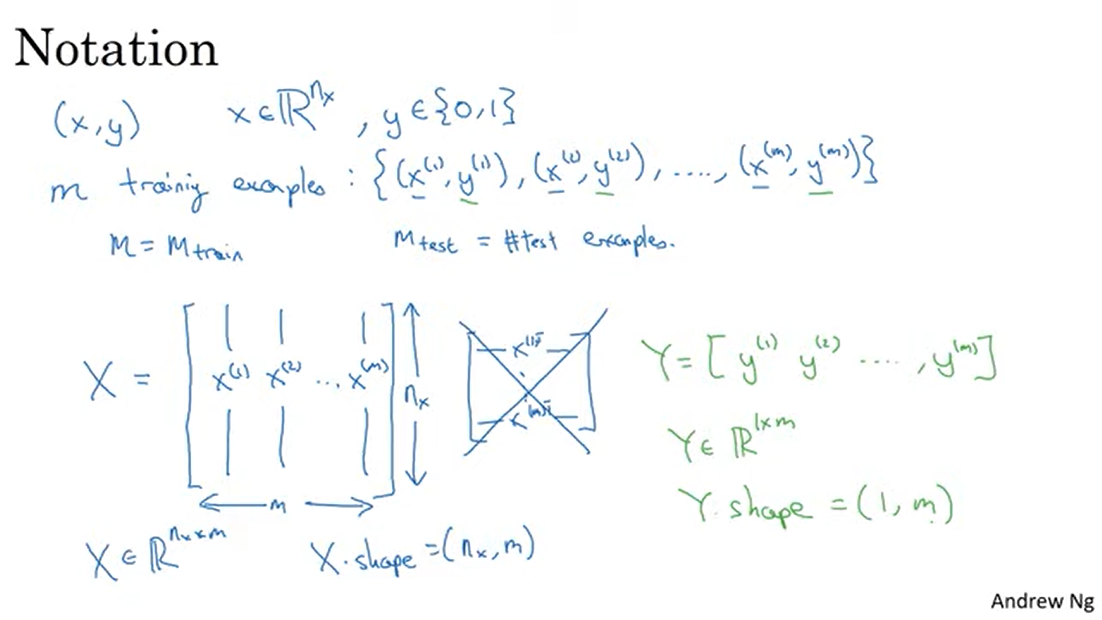 Notation
(x,y) x∈ℝ^{n_x}, y∈{0,1}
m trainig examples : {(x^{(1)}, y^{(1)}), (x^{(2)}, y^{(2)}), ...., (x^{(m)}, y^{(m)})}
M = M_{train} M_{test} = #test examples.
X = [x^{(1)} x^{(2)} ... x^{(m)}]
n_x
m
x^{(1)T}
x^{(m)T}
Y = [y^{(1)} y^{(2)} ...., y^{(m)}]
Y ∈ ℝ^{1×m}
Y.shape = (1, m)
X ∈ ℝ^{n_x×m} X.shape = (n_x, m)
Andrew Ng